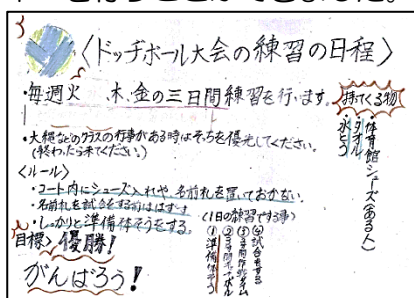 〈ドッチボール大会の練習の日程〉
・毎週火 木、金の三日間練習を行います。
持ってくる物
・体育館シューズ(ある人)
・タオル
・水とう
・大縄などのクラスの行事がある時はそちらを優先してください。
(終わったら来てください。)
〈ルール〉
・コート内にシューズ入れや、名前札を置いておかない。
・名前札を試合をする前ははずす
・しっかりと準備体そうをする。
〈1日の練習でする事〉
①準備体そう
目標〉優勝!
がんばろう!